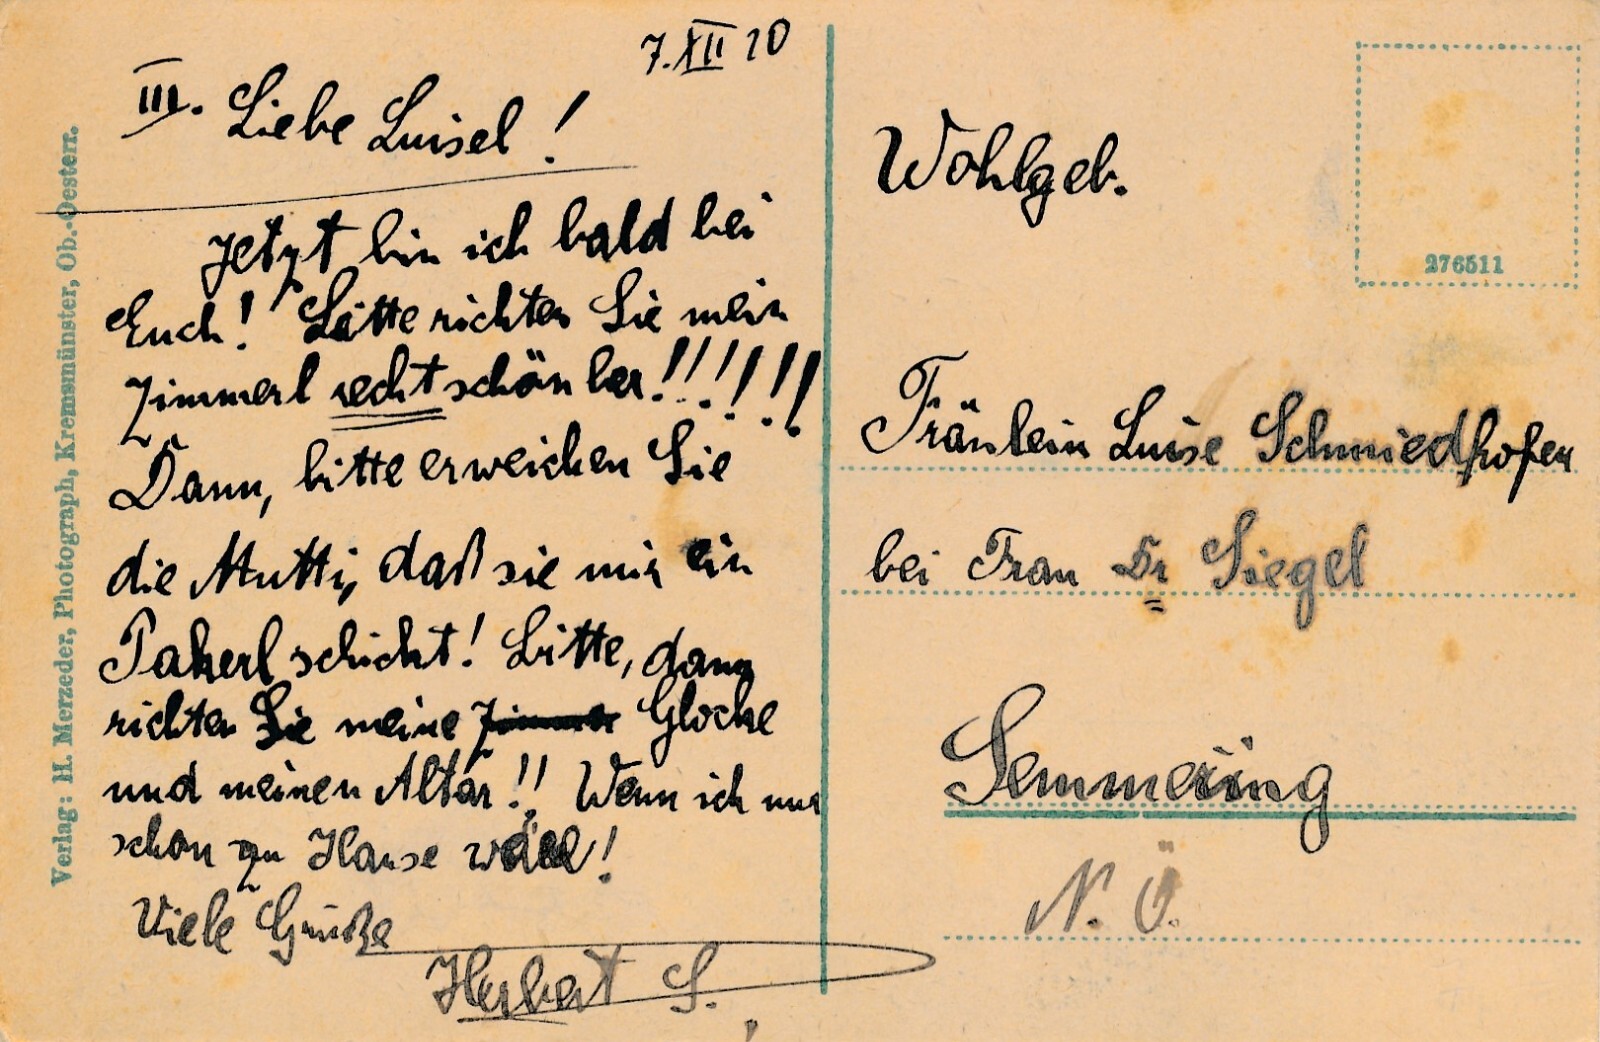 7.XII 20
III. Liebe Luisel!
Jetzt bin ich bald bei
Euch! Bitte richten Sie mein
Zimmerl recht schön her!!!!!!
Dann, bitte erweichen Sie
die Mutti, daß sie mir ein
Pakerl schickt! Bitte, dann
richten Sie meine Zimmer Glocke
und meinen Altar!! Wenn ich nur
schon zu Hause wäre!
Viele Grüße
Herbert S.
Wohlgeb.
Fräulein Luise Schmiedhofer
bei Frau Dr Siegel
Semmering
N. Ö.
276511
Verlag: H. Merzeder, Photograph, Kremsmünster, Ob.-Oesterr.